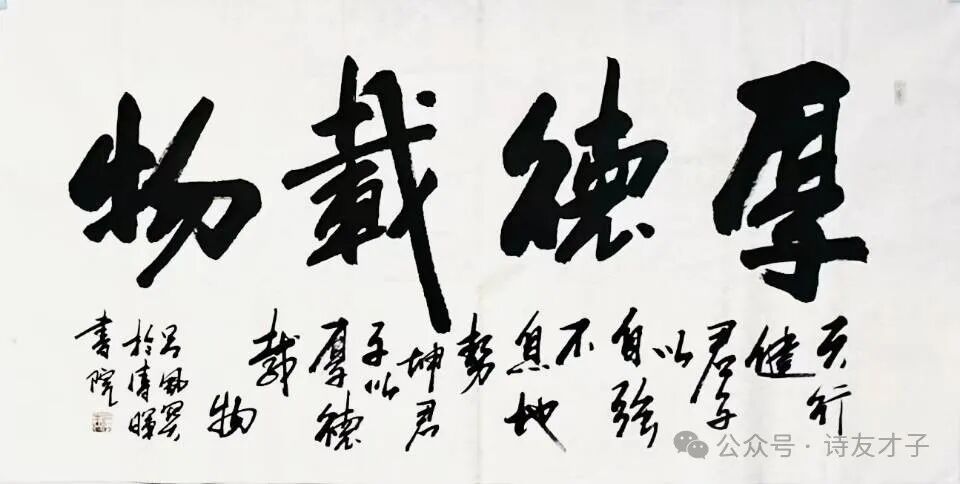 厚德載物
天行
健
君子
以
自強
不
息地
勢
坤君
子以
厚德
載
物
風
於清暉
書院
公众号 · 诗友才子